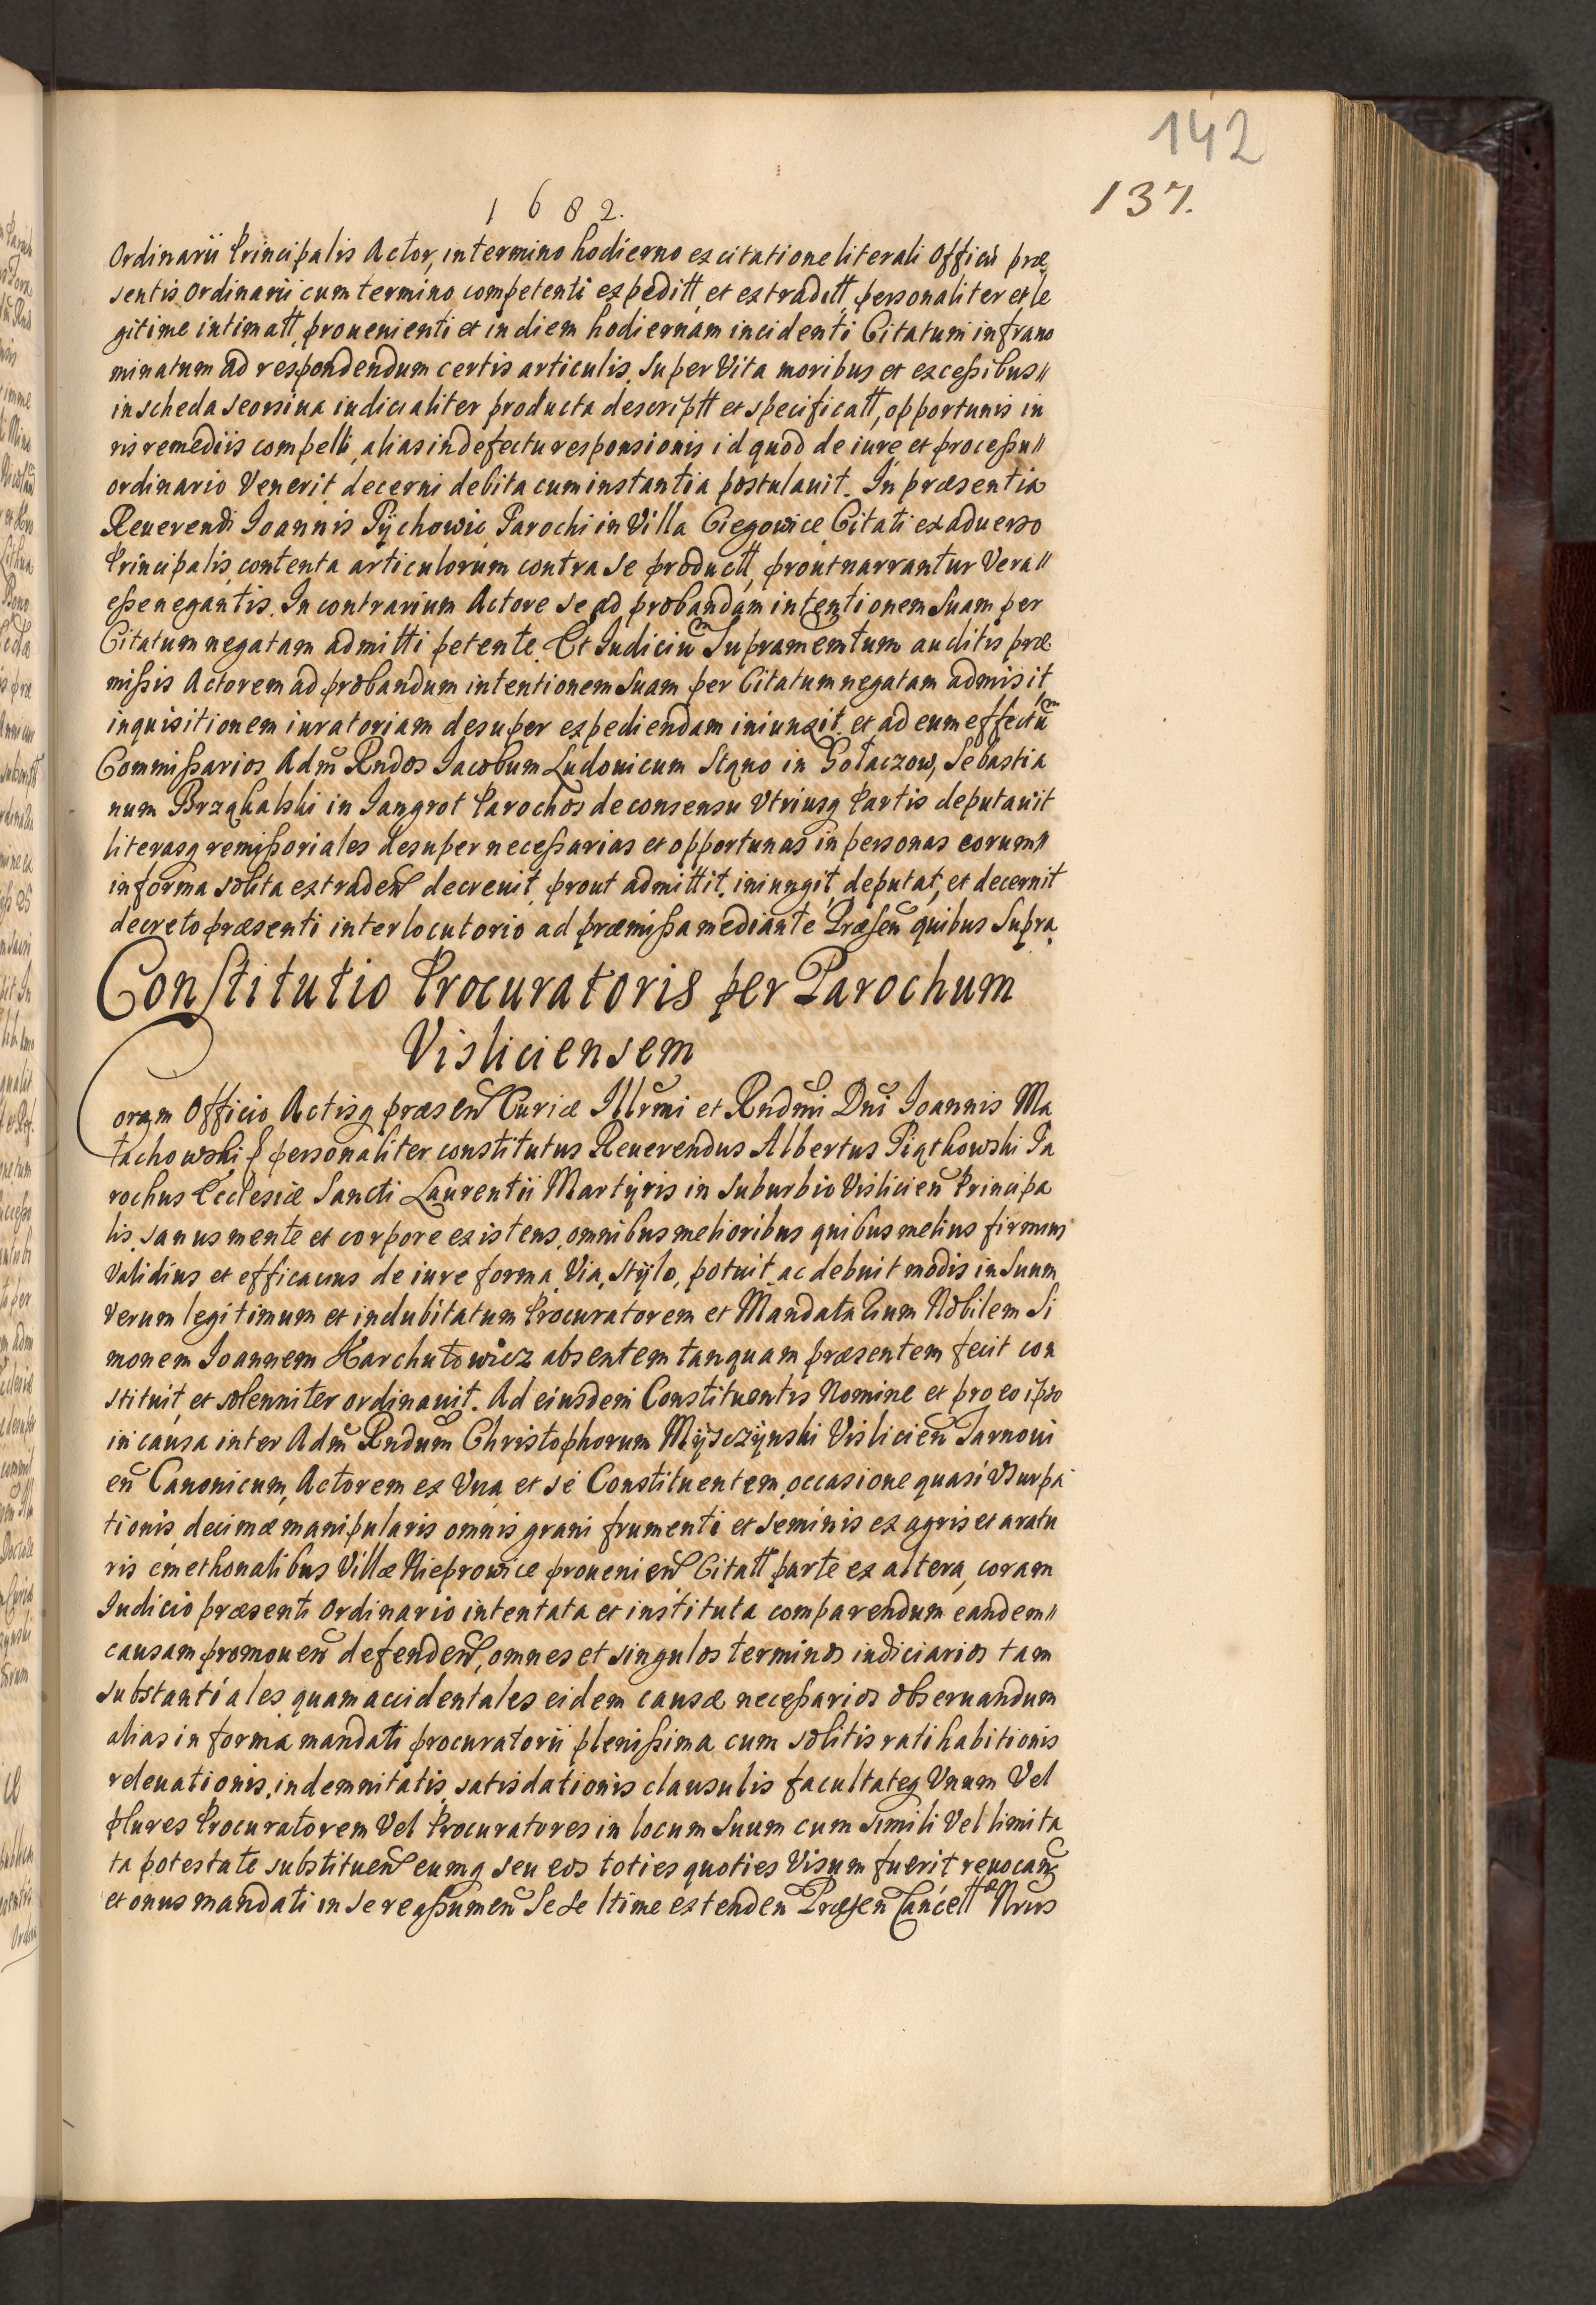 142
137.
1682.
Ordinarii Principalis Actor, in termino hodierno ex citatione literali Officii præ
sentis Ordinarii cum termino competenti expeditt et extraditt personaliter et le
gitime intimatt, prouenienti et in diem hodiernam incidenti Citatum infrano
minatum ad respondendum certis articulis super Vita moribus et excessibus //
in scheda seorsiua iudicialiter producta descriptt et specificatt, opportunis iu
ris remediis compelli, alias in defectu responsionis id quod de iure et processu //
ordinario Venerit decerni debita cum instantia postulauit. In præsentia
Reuerendi Joannis Pÿchowic, Parochi in Villa Ciegowice Citati ex aduerso
Principalis, contenta articulorum contra se productt, prout narrantur Vera //
esse negantis. In contrarium Actore se ad probandam intentionem suam per
Citatum negatam admitti petente. Et Iudicium Supramemtum auditis præ
missis Actorem ad probandum intentionem suam per Citatum negatam admisit
inquisitionem iuratoriam desuper expediendam iniunxit, et ad eum effectum
Commissarios Adm̃ Rndos Jacobum Ludouicum Stąno in Gołaczow, Sebastia
num Brząkalski in Jangrot Parochos de consensu Vtriusq Partis deputauit
literasq remissoriales desuper necessarias et opportunas in personas eorum //
in forma solita extraden̄ decreuit, prout admittit, iniungit, deputat, et decernit
decreto præsenti interlocutorio ad præmissa mediante Præsen̄ quibus supra
Constitutio Procuratoris per Parochum
Visliciensem
Coram Officio Actisq præsen̄ Curiæ Illrmi et Rndmi Dni Joannis Ma
łachowski personaliter constitutus Reuerendus Albertus Piątkowski Pa
rochus Ecclesiæ Sancti Laurentii Martÿris in suburbio Vislicien̄ Principa
lis, sanus mente et corpore existens, omnibus melioribus quibus melius firmius
Validius et efficacius de iure forma, Via, stÿlo, potuit, ac debuit modis in suum
Verum legitimum et indubitatum Procuratorem et Mandatarium Nobilem Si
monem Joannem Karchutowicz absentem tanquam præsentem fecit con
stituit, et solenniter ordinauit. Ad eiusdem Constituentis Nomine et pro eo ipso
in causa inter Adm̃ Rndum Christophorum Mÿsczÿnski Vislicien̄ Tarnoui
en̄ Canonicum, Actorem ex Vna, et se Constituentem, occasione quasi Vsurpa
tionis, decimæ manipularis omnis grani frumenti et seminis ex agris et aratu
ris cmethonalibus Villæ Nieprowice prouenien̄ Citatt parte ex altera, coram
Iudicio præsenti Ordinario intentata et instituta comparendum eandem //
causam promouen̄ defenden̄, omnes et singulos terminos iudiciarios tam
substantiales quam accidentales eidem causæ necessarios obseruandum
alias in forma mandati procuratorii plenissima cum solitis ratihabitionis
releuationis, indemnitatis, satisdationis clausulis facultateq Vnum Vel
plures Procuratorem Vel Procuratores in locum suum cum simili Vel limita
ta potestate substituen̄ eumq seu eos toties quoties Visum fuerit, reuocan̄
et onus mandati in se reassumen̄ Se se ltime extenden̄ Præsen̄ Cancell Nrus